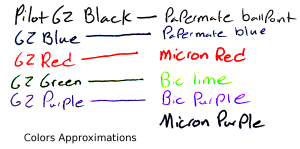 Pilot G2 Black — Papermate ballpoint
G2 Blue — Papermate blue
G2 Red — Micron Red
G2 Green — Bic lime
G2 Purple — Bic Purple
Micron Purple
Colors Approximations